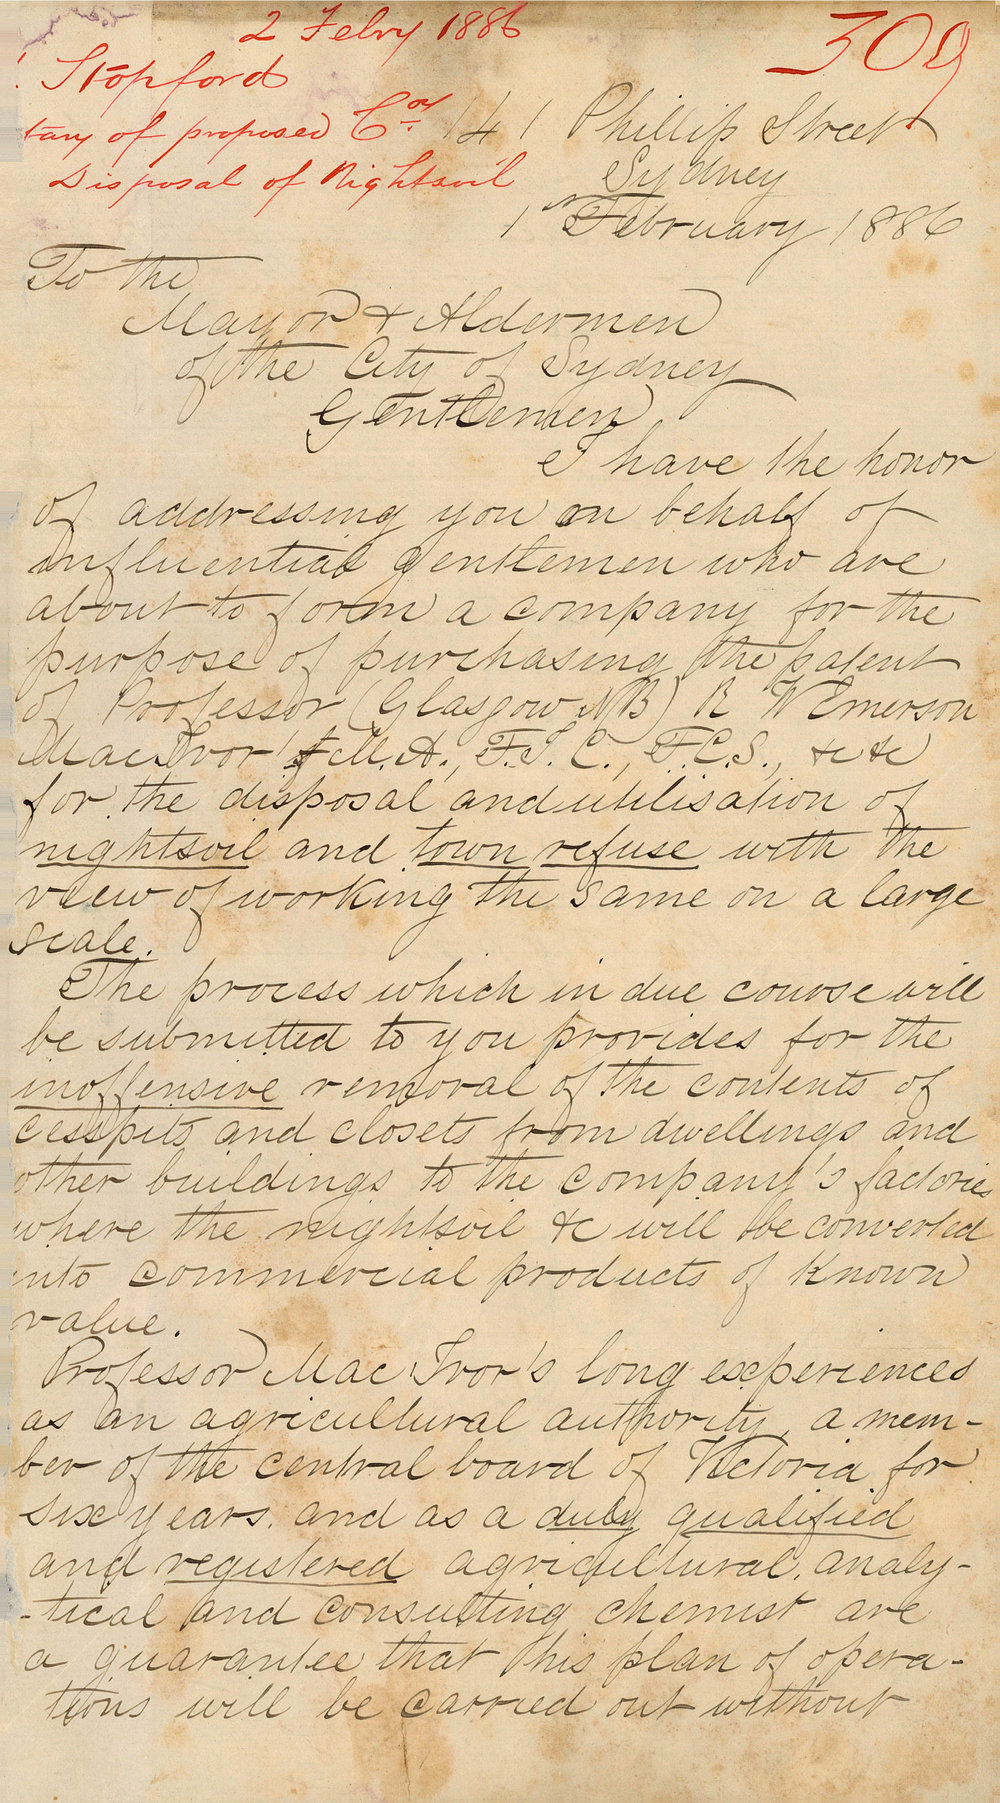 2 Febry 1886
309
Stopford
tary of proposed Coy.
Disposal of Nightsoil
141 Phillip Street
Sydney
1st February 1886
To the
Mayor & Aldermen
of the City of Sydney
Gentlemen
I have the honor
of addressing you on behalf of
influential gentlemen who are
about to form a company for the
purpose of purchasing the patent
of Professor (Glasgow NB) R W Emerson
Mac Ivor M.A., F.I.C., F.C.S., &c &c
for the disposal and utilisation of
nightsoil and town refuse with the
view of working the same on a large
scale.
The process which in due course will
be submitted to you provides for the
inoffensive removal of the contents of
cesspits and closets from dwellings and
other buildings to the company's factories
where the nightsoil &c will be converted
into commercial products of known
value.
Professor Mac Ivor's long experiences
as an agricultural authority, a mem-
ber of the central board of Victoria for
six years, and as a duly qualified
and registered agricultural, analy-
-tical and consulting chemist are
a guarantee that this plan of opera-
tions will be carried out without